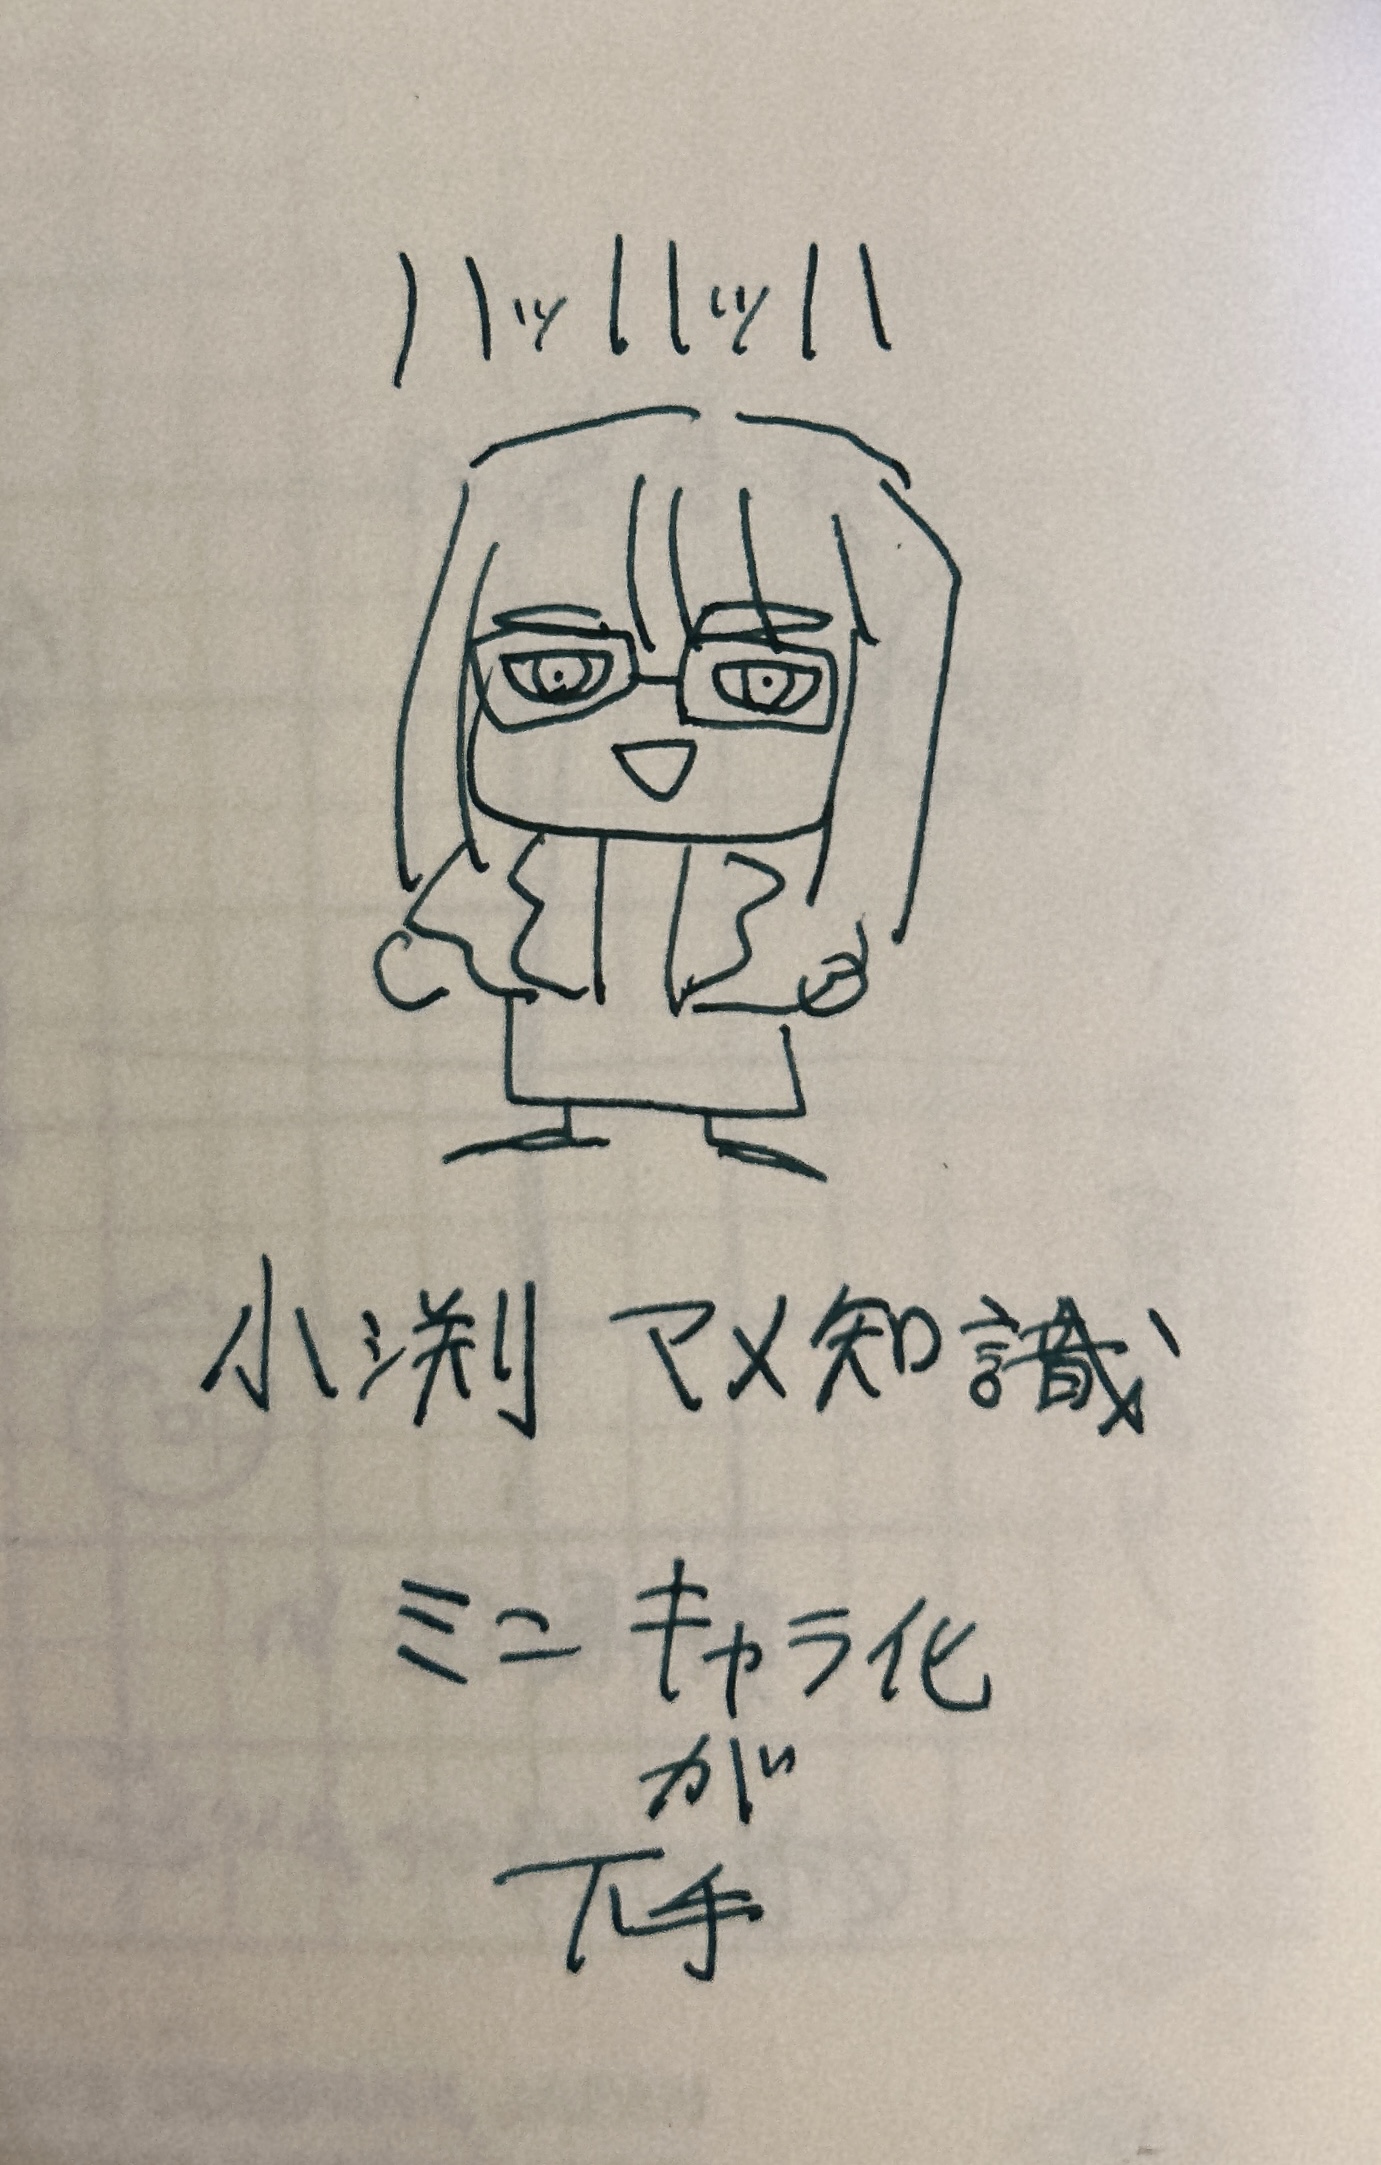 ハッハッハ
小渕 マメ知識
ミニキャラ化
が
下手